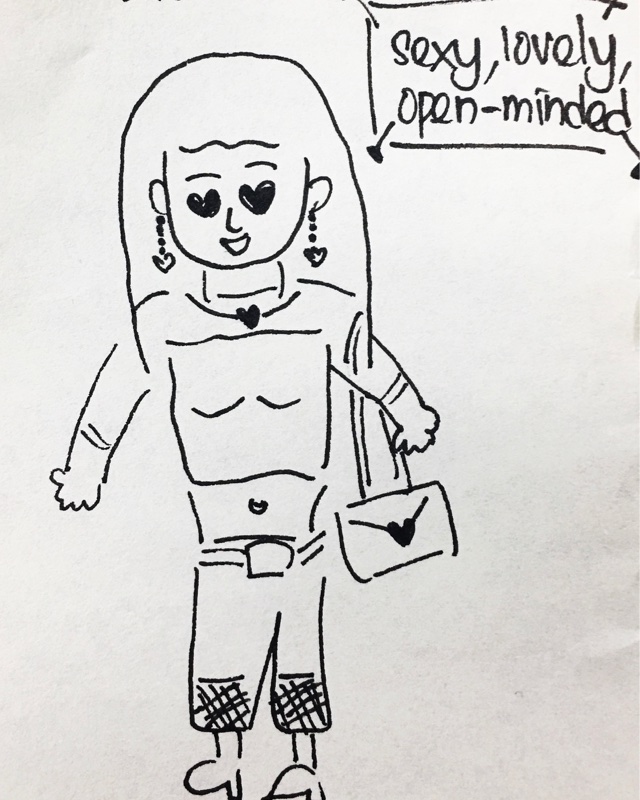 sexy, lovely,
open-minded